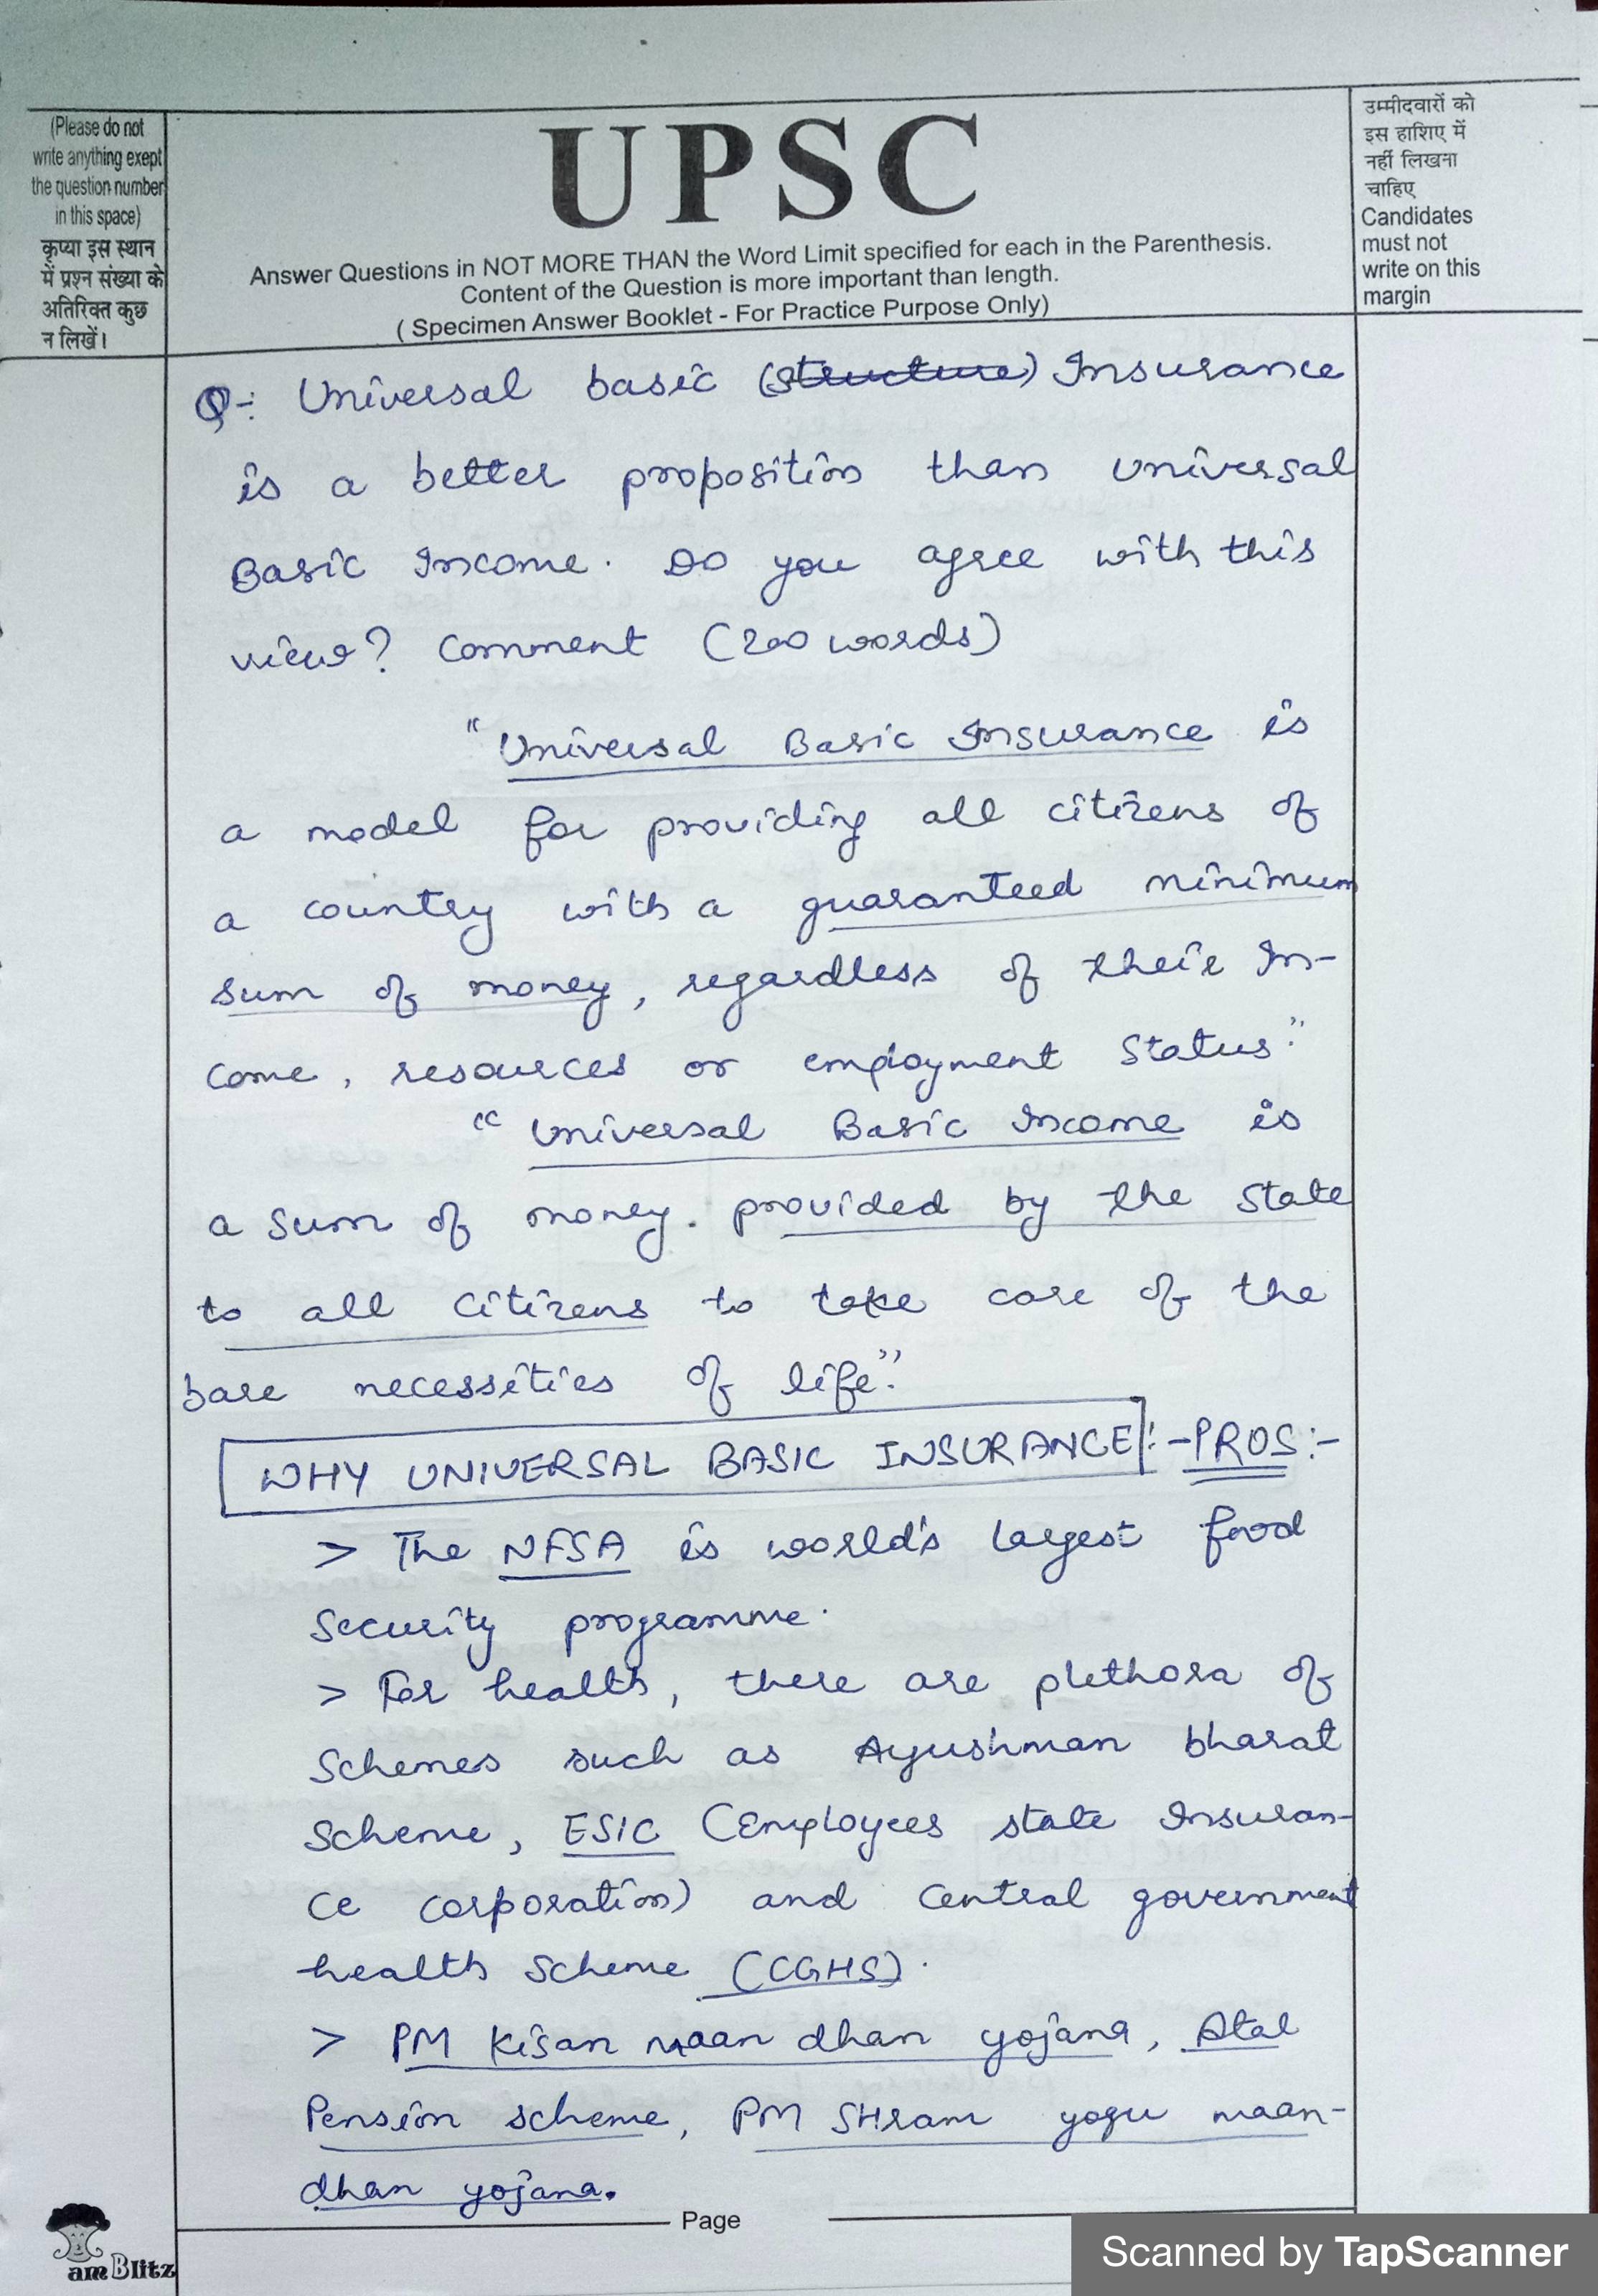 (Please do not
write anything exept
the question number
in this space)
कृप्या इस स्थान
में प्रश्न संख्या के
अतिरिक्त कुछ
न लिखें।
UPSC
Answer Questions in NOT MORE THAN the Word Limit specified for each in the Parenthesis.
Content of the Question is more important than length.
( Specimen Answer Booklet - For Practice Purpose Only)
उम्मीदवारों को
इस हाशिए में
नहीं लिखना
चाहिए
Candidates
must not
write on this
margin
Q-: Universal basic (structure) Insurance
is a better proposition than universal
Basic Income. Do you agree with this
view? Comment (200 words)
"Universal Basic Insurance is
a model for providing all citizens of
a country with a guaranteed minimum
sum of money, regardless of their In-
come, resources or employment status."
"Universal Basic Income is
a sum of money. provided by the state
to all citizens to take care of the
bare necessities of life."
WHY UNIVERSAL BASIC INSURANCE :- PROS:-
> The NFSA is world's largest food
security programme.
> For health, there are plethora of
schemes such as Ayushman bharat
scheme, ESIC (Employees state Insuran-
ce corporation) and central government
health scheme (CGHS).
> PM Kisan maan dhan yojana, Atal
Pension scheme, PM SHram yogu maan-
dhan yojana.
Page
am Blitz
Scanned by TapScanner